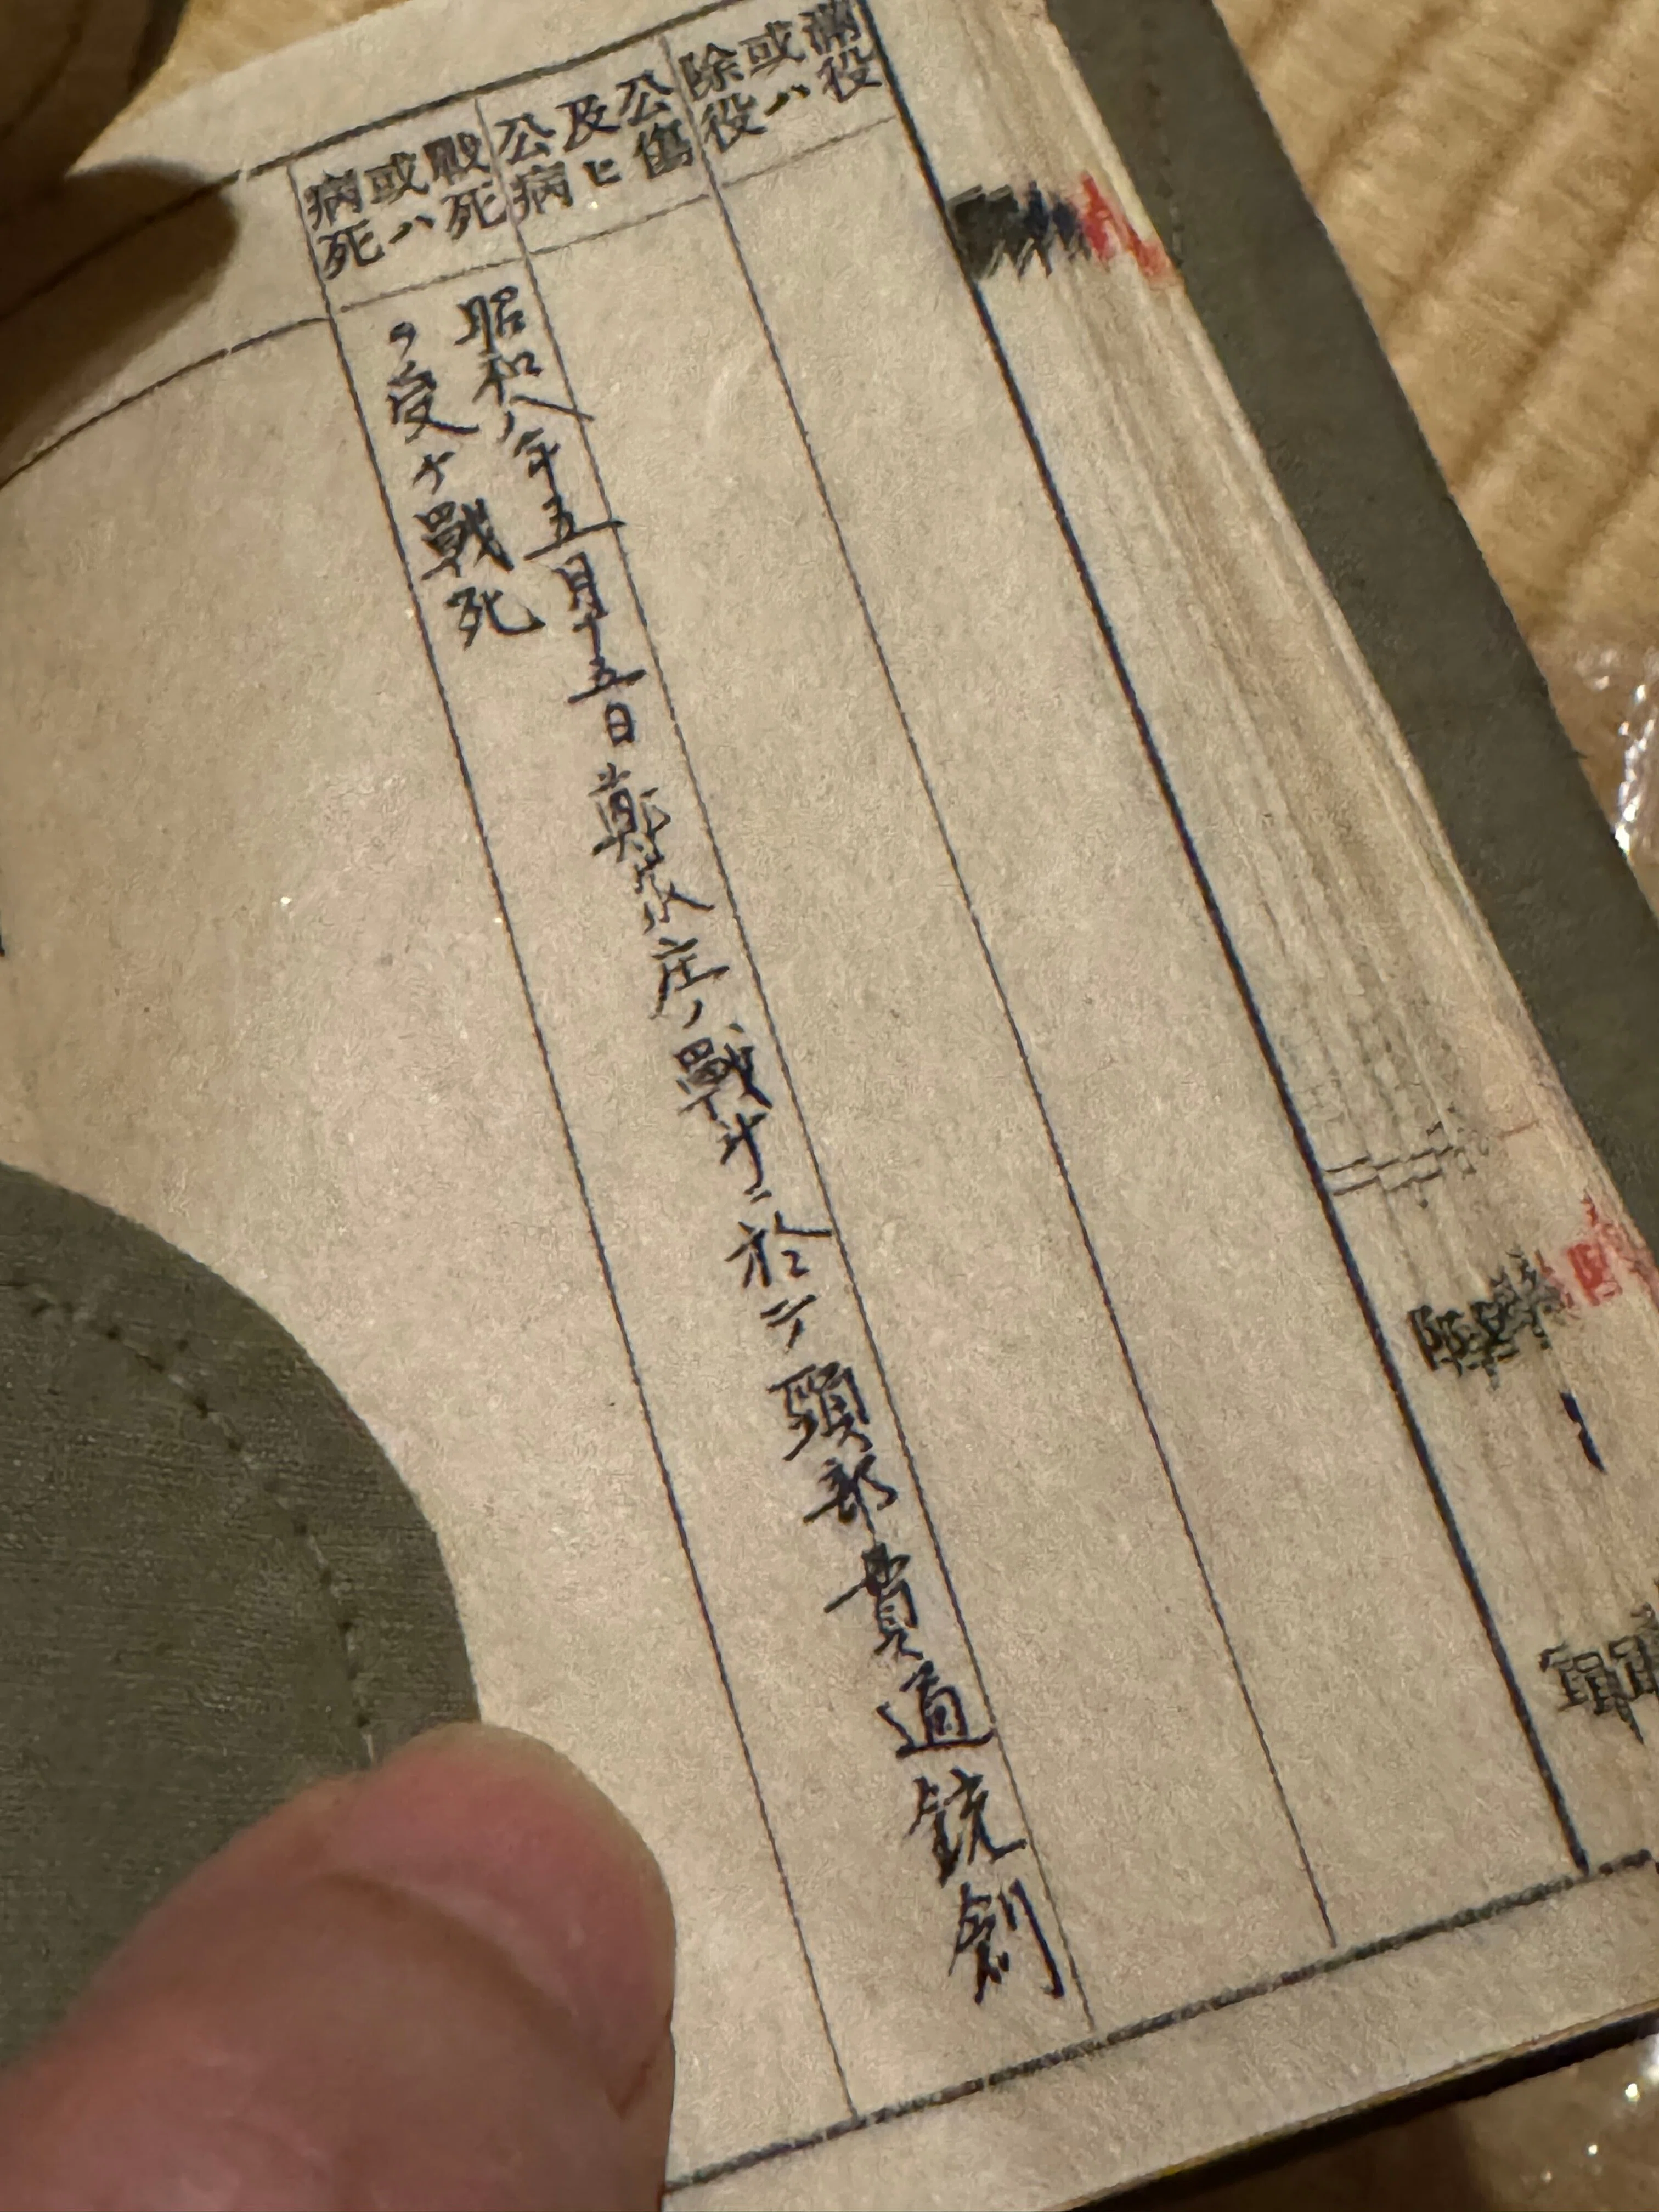 満役
或ハ
除役
公傷
及ヒ
公病
戰死
或ハ
病死
昭和八年五月十五日鄭家庄ノ戰斗ニ於テ頭部貫通銃創
ヲ受ケ戰死